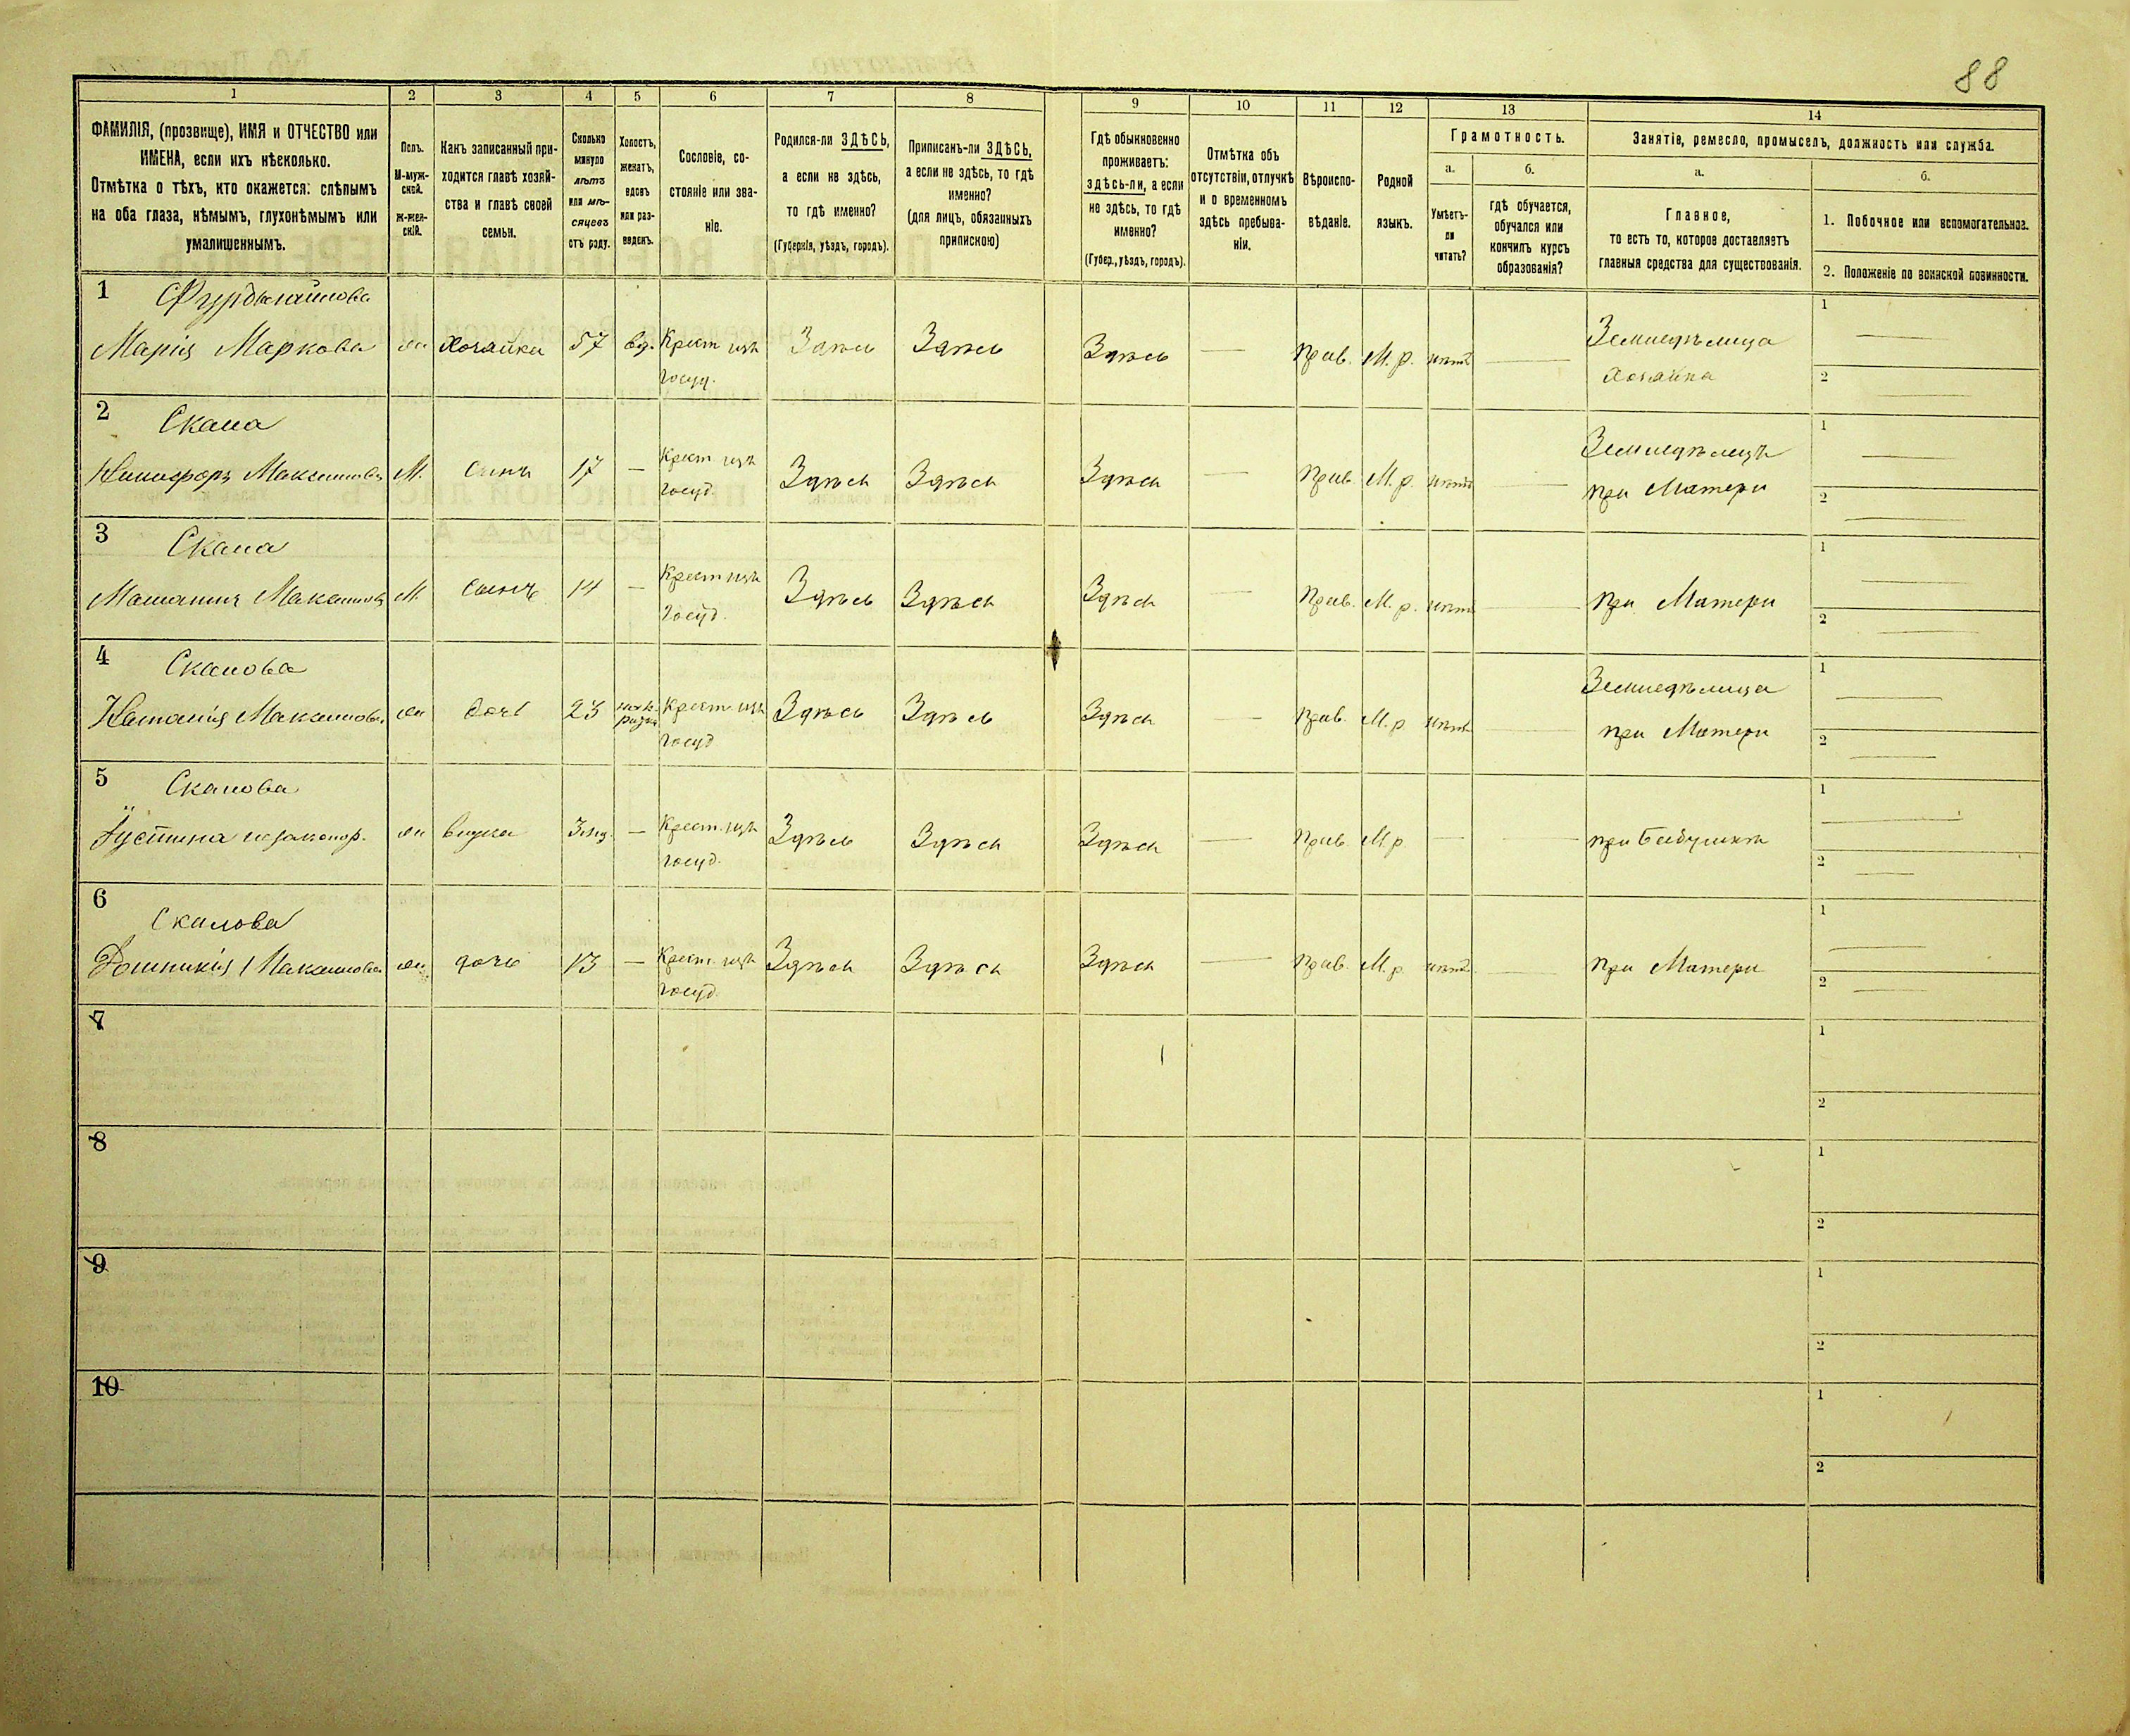 88
1 2 3 4 5 6 7 8 9 10 11 12 13 14
ФАМИЛІЯ, (прозвище), ИМЯ и ОТЧЕСТВО или
ИМЕНА, если ихъ нѣсколько.
Отмѣтка о тѣхъ, кто окажется: слѣпымъ
на оба глаза, нѣмымъ, глухонѣмымъ или
умалишеннымъ.
Полъ.
М-муж-
ской.
Ж-жен-
скій.
Какъ записанный при-
ходится главѣ хозяй-
ства и главѣ своей
семьи.
Сколько
минуло
лѣтъ
или мѣ-
сяцевъ
отъ роду.
Холостъ,
женатъ,
вдовъ
или раз-
веденъ.
Сословіе, со-
стояніе или зва-
ніе.
Родился-ли ЗДѢСЬ,
а если не здѣсь,
то гдѣ именно?
(Губернія, уѣздъ, городъ).
Приписанъ-ли ЗДѢСЬ,
а если не здѣсь, то гдѣ
именно?
(для лицъ, обязанныхъ
припискою)
Гдѣ обыкновенно
проживаетъ:
здѣсь-ли, а если
не здѣсь, то гдѣ
именно?
(Губер., уѣздъ, городъ).
Отмѣтка объ
отсутствіи, отлучкѣ
и о временномъ
здѣсь пребыва-
ніи.
Вѣроиспо-
вѣданіе.
Родной
языкъ.
Грамотность.
а.
Умѣетъ-
ли
читать?
б.
гдѣ обучается,
обучался или
кончилъ курсъ
образованія?
Занятіе, ремесло, промыселъ, должность или служба.
а.
Главное,
то есть то, которое доставляетъ
главныя средства для существованія.
б.
1. Побочное или вспомогательное.
2. Положеніе по воинской повинности.
1
Марія Маркова Хозяйка 57 вд. Крест изъ госуд. Здѣсь Здѣсь Здѣсь — Прав. М. р. нѣтъ — Земледѣлица Хозяйка 1 — 2 —
2 Скала
Никифоръ Максимовъ М. Сынъ 17 — Крест изъ госуд. Здѣсь Здѣсь Здѣсь — Прав. М. р. нѣтъ — Земледѣлецъ при Матери 1 — 2 —
3 Скала
М. Сынъ 14 — Крест изъ Госуд. Здѣсь Здѣсь Здѣсь — Прав. М. р. нѣтъ — При Матери 1 — 2 —
4 Скалова
Наталія Максимова дочь 23 Крест. изъ госуд Здѣсь Здѣсь Здѣсь — Прав. М. р нѣтъ — Земледѣлица при Матери 1 — 2 —
5 Скалова
Іустина незаконор. внучка — Крест. изъ госуд. Здѣсь Здѣсь Здѣсь — Прав. М р — — при Бабушкѣ 1 — 2 —
6 Скалова
Домникія Максимова дочь 13 — Крест. изъ госуд. Здѣсь Здѣсь Здѣсь — Прав. М. р. нѣтъ — При Матери 1 — 2 —
7 1 2
8 1 2
9 1 2
10 1 2